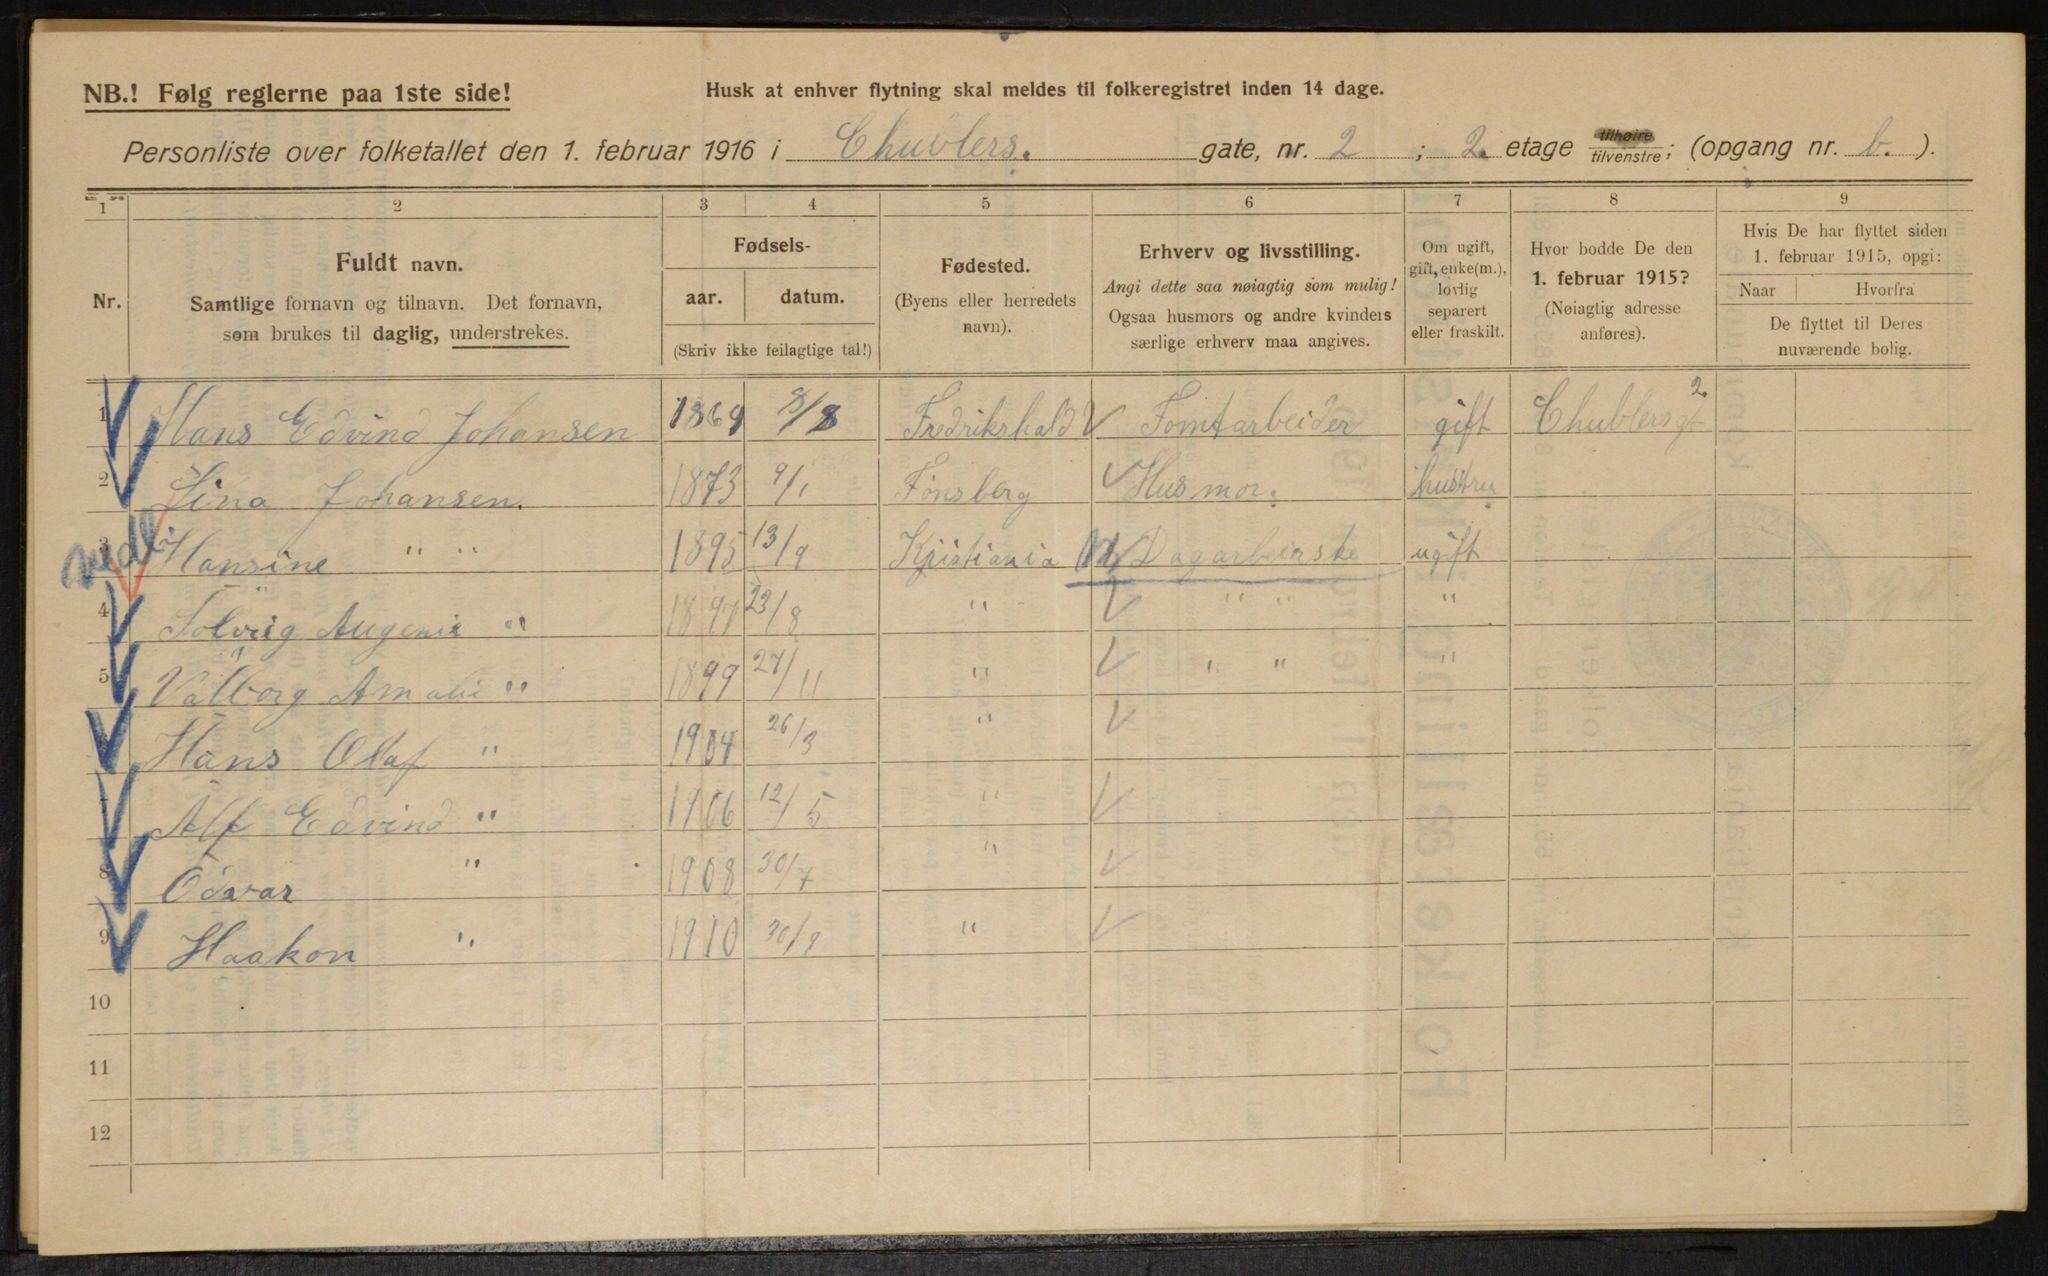 NB.! Følg reglerne paa 1ste side!
Husk at enhver flytning skal meldes til folkeregistret inden 14 dage.
Personliste over folketallet den 1. februar 1916 i Chublers. gate, nr. 2 ; 2. etage tilhøire tilvenstre; (opgang nr. b. ).
1 2 3 4 5 6 7 8 9
Nr.
Fuldt navn.
Samtlige fornavn og tilnavn. Det fornavn,
som brukes til daglig, understrekes.
Fødsels-
aar. datum.
(Skriv ikke feilagtige tal!)
Fødested.
(Byens eller herredets
navn).
Erhverv og livsstilling.
Angi dette saa nøiagtig som mulig!
Ogsaa husmors og andre kvinders
særlige erhverv maa angives.
Om ugift,
gift, enke(m.),
lovlig
separert
eller fraskilt.
Hvor bodde De den
1. februar 1915?
(Nøiagtig adresse
anføres).
Hvis De har flyttet siden
1. februar 1915, opgi:
Naar Hvorfra
De flyttet til Deres
nuværende bolig.
1 Hans Edvind Johansen 1869 8/8 Fredrikshald Tomtarbeider gift Chublersgt 2.
2 Sina Johansen. 1873 9/1 Tønsberg Husmor. hustru
3 Hansine " " 1895 13/9 Kristiania Dagarbeirske ugift
4 Solveig Augenie " 1897 23/8 " " " "
5 Valborg Amalie " 1899 27/11 " " " "
Hans Olaf " 1904 26/3 "
7 Alf Edvind " 1906 12/5 "
8 Odvar " 1908 30/7 "
9 Haakon " 1910 30/8 "
10
11
12